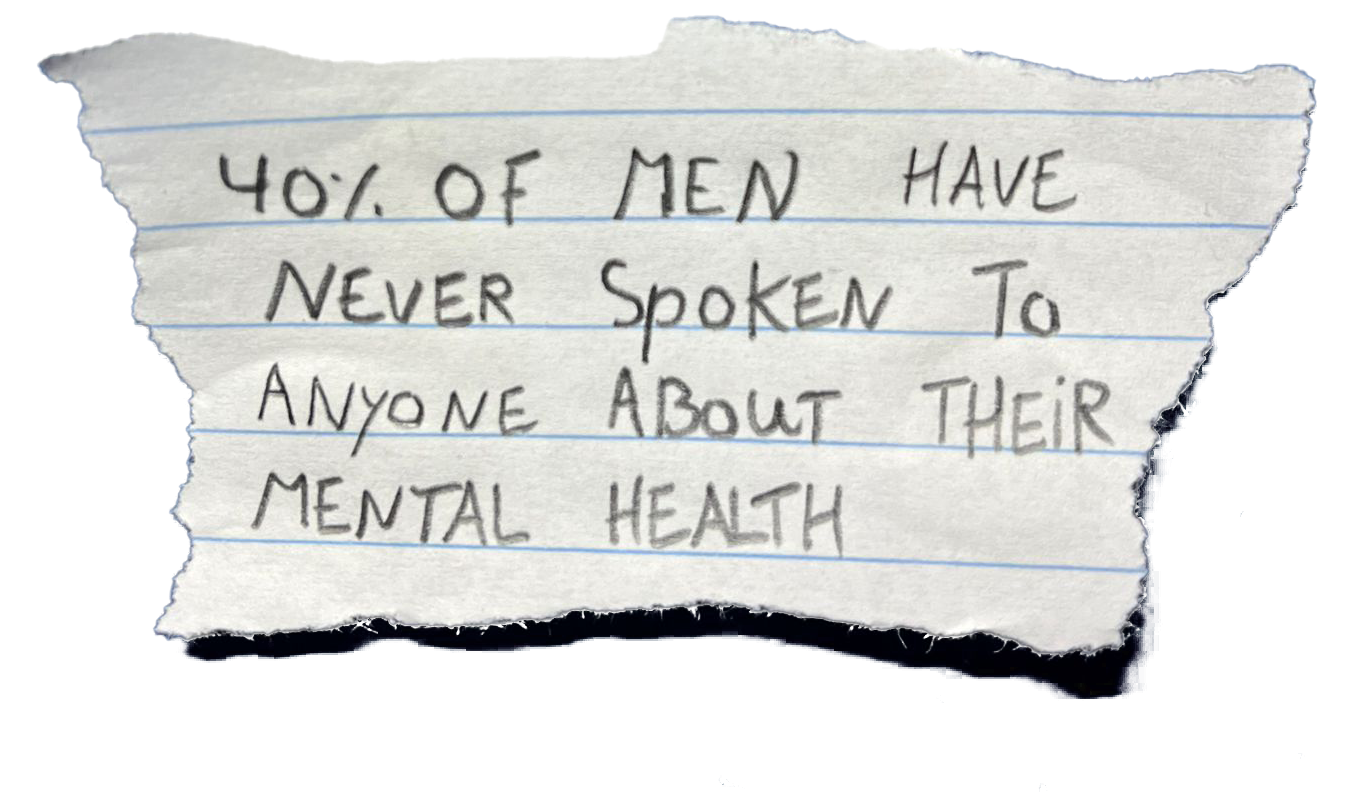 40% OF MEN HAVE
NEVER SpOKEN To
ANyONE ABOUT THEiR
MENTAL HEALTH